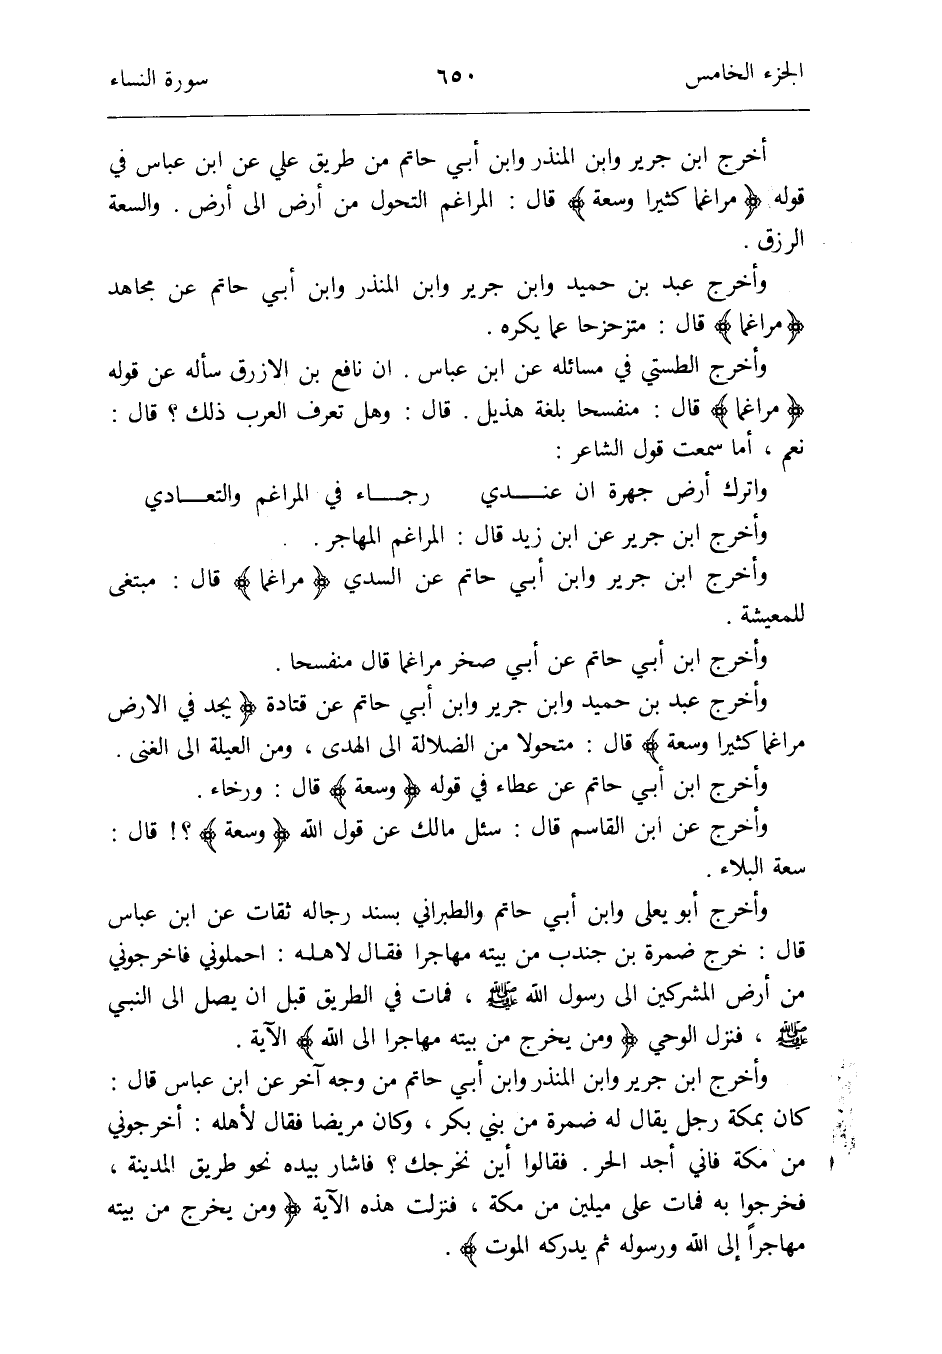 الجزء الخامس ٦٥٠ سورة النساء
أخرج ابن جرير وابن المنذر وابن أبي حاتم من طريق علي عن ابن عباس في
قوله ﴿ مراغما كثيرا وسعة ﴾ قال : المراغم التحول من أرض الى أرض . والسعة
الرزق .
وأخرج عبد بن حميد وابن جرير وابن المنذر وابن أبي حاتم عن مجاهد
﴿ مراغما ﴾ قال : متزحزحا عما يكره .
وأخرج الطستي في مسائله عن ابن عباس . ان نافع بن الازرق سأله عن قوله
﴿ مراغما ﴾ قال : منفسحا بلغة هذيل . قال : وهل تعرف العرب ذلك ؟ قال :
نعم ، أما سمعت قول الشاعر :
واترك أرض جهرة ان عنـــدي رجـــاء في المراغم والتعـــادي
وأخرج ابن جرير عن ابن زيد قال : المراغم المهاجر .
وأخرج ابن جرير وابن أبي حاتم عن السدي ﴿ مراغما ﴾ قال : مبتغى
للمعيشة .
وأخرج ابن أبي حاتم عن أبي صخر مراغما قال منفسحا .
وأخرج عبد بن حميد وابن جرير وابن أبي حاتم عن قتادة ﴿ يجد في الارض
مراغما كثيرا وسعة ﴾ قال : متحولا من الضلالة الى الهدى ، ومن العيلة الى الغنى .
وأخرج ابن أبي حاتم عن عطاء في قوله ﴿ وسعة ﴾ قال : ورخاء .
وأخرج عن ابن القاسم قال : سئل مالك عن قول الله ﴿ وسعة ﴾ ؟! قال :
سعة البلاء .
وأخرج أبو يعلى وابن أبي حاتم والطبراني بسند رجاله ثقات عن ابن عباس
قال : خرج ضمرة بن جندب من بيته مهاجرا فقـال لاهلـه : احملوني فاخرجوني
من أرض المشركين الى رسول الله ﷺ ، فمات في الطريق قبل ان يصل الى النبي
ﷺ ، فنزل الوحي ﴿ ومن يخرج من بيته مهاجرا الى الله ﴾ الآية .
وأخرج ابن جرير وابن المنذر وابن أبي حاتم من وجه آخر عن ابن عباس قال :
كان بمكة رجل يقال له ضمرة من بني بكر ، وكان مريضا فقال لأهله : أخرجوني
من مكة فاني أجد الحر . فقالوا أين نخرجك ؟ فاشار بيده نحو طريق المدينة ،
فخرجوا به فمات على ميلين من مكة ، فنزلت هذه الآية ﴿ ومن يخرج من بيته
مهاجراً إلى الله ورسوله ثم يدركه الموت ﴾ .